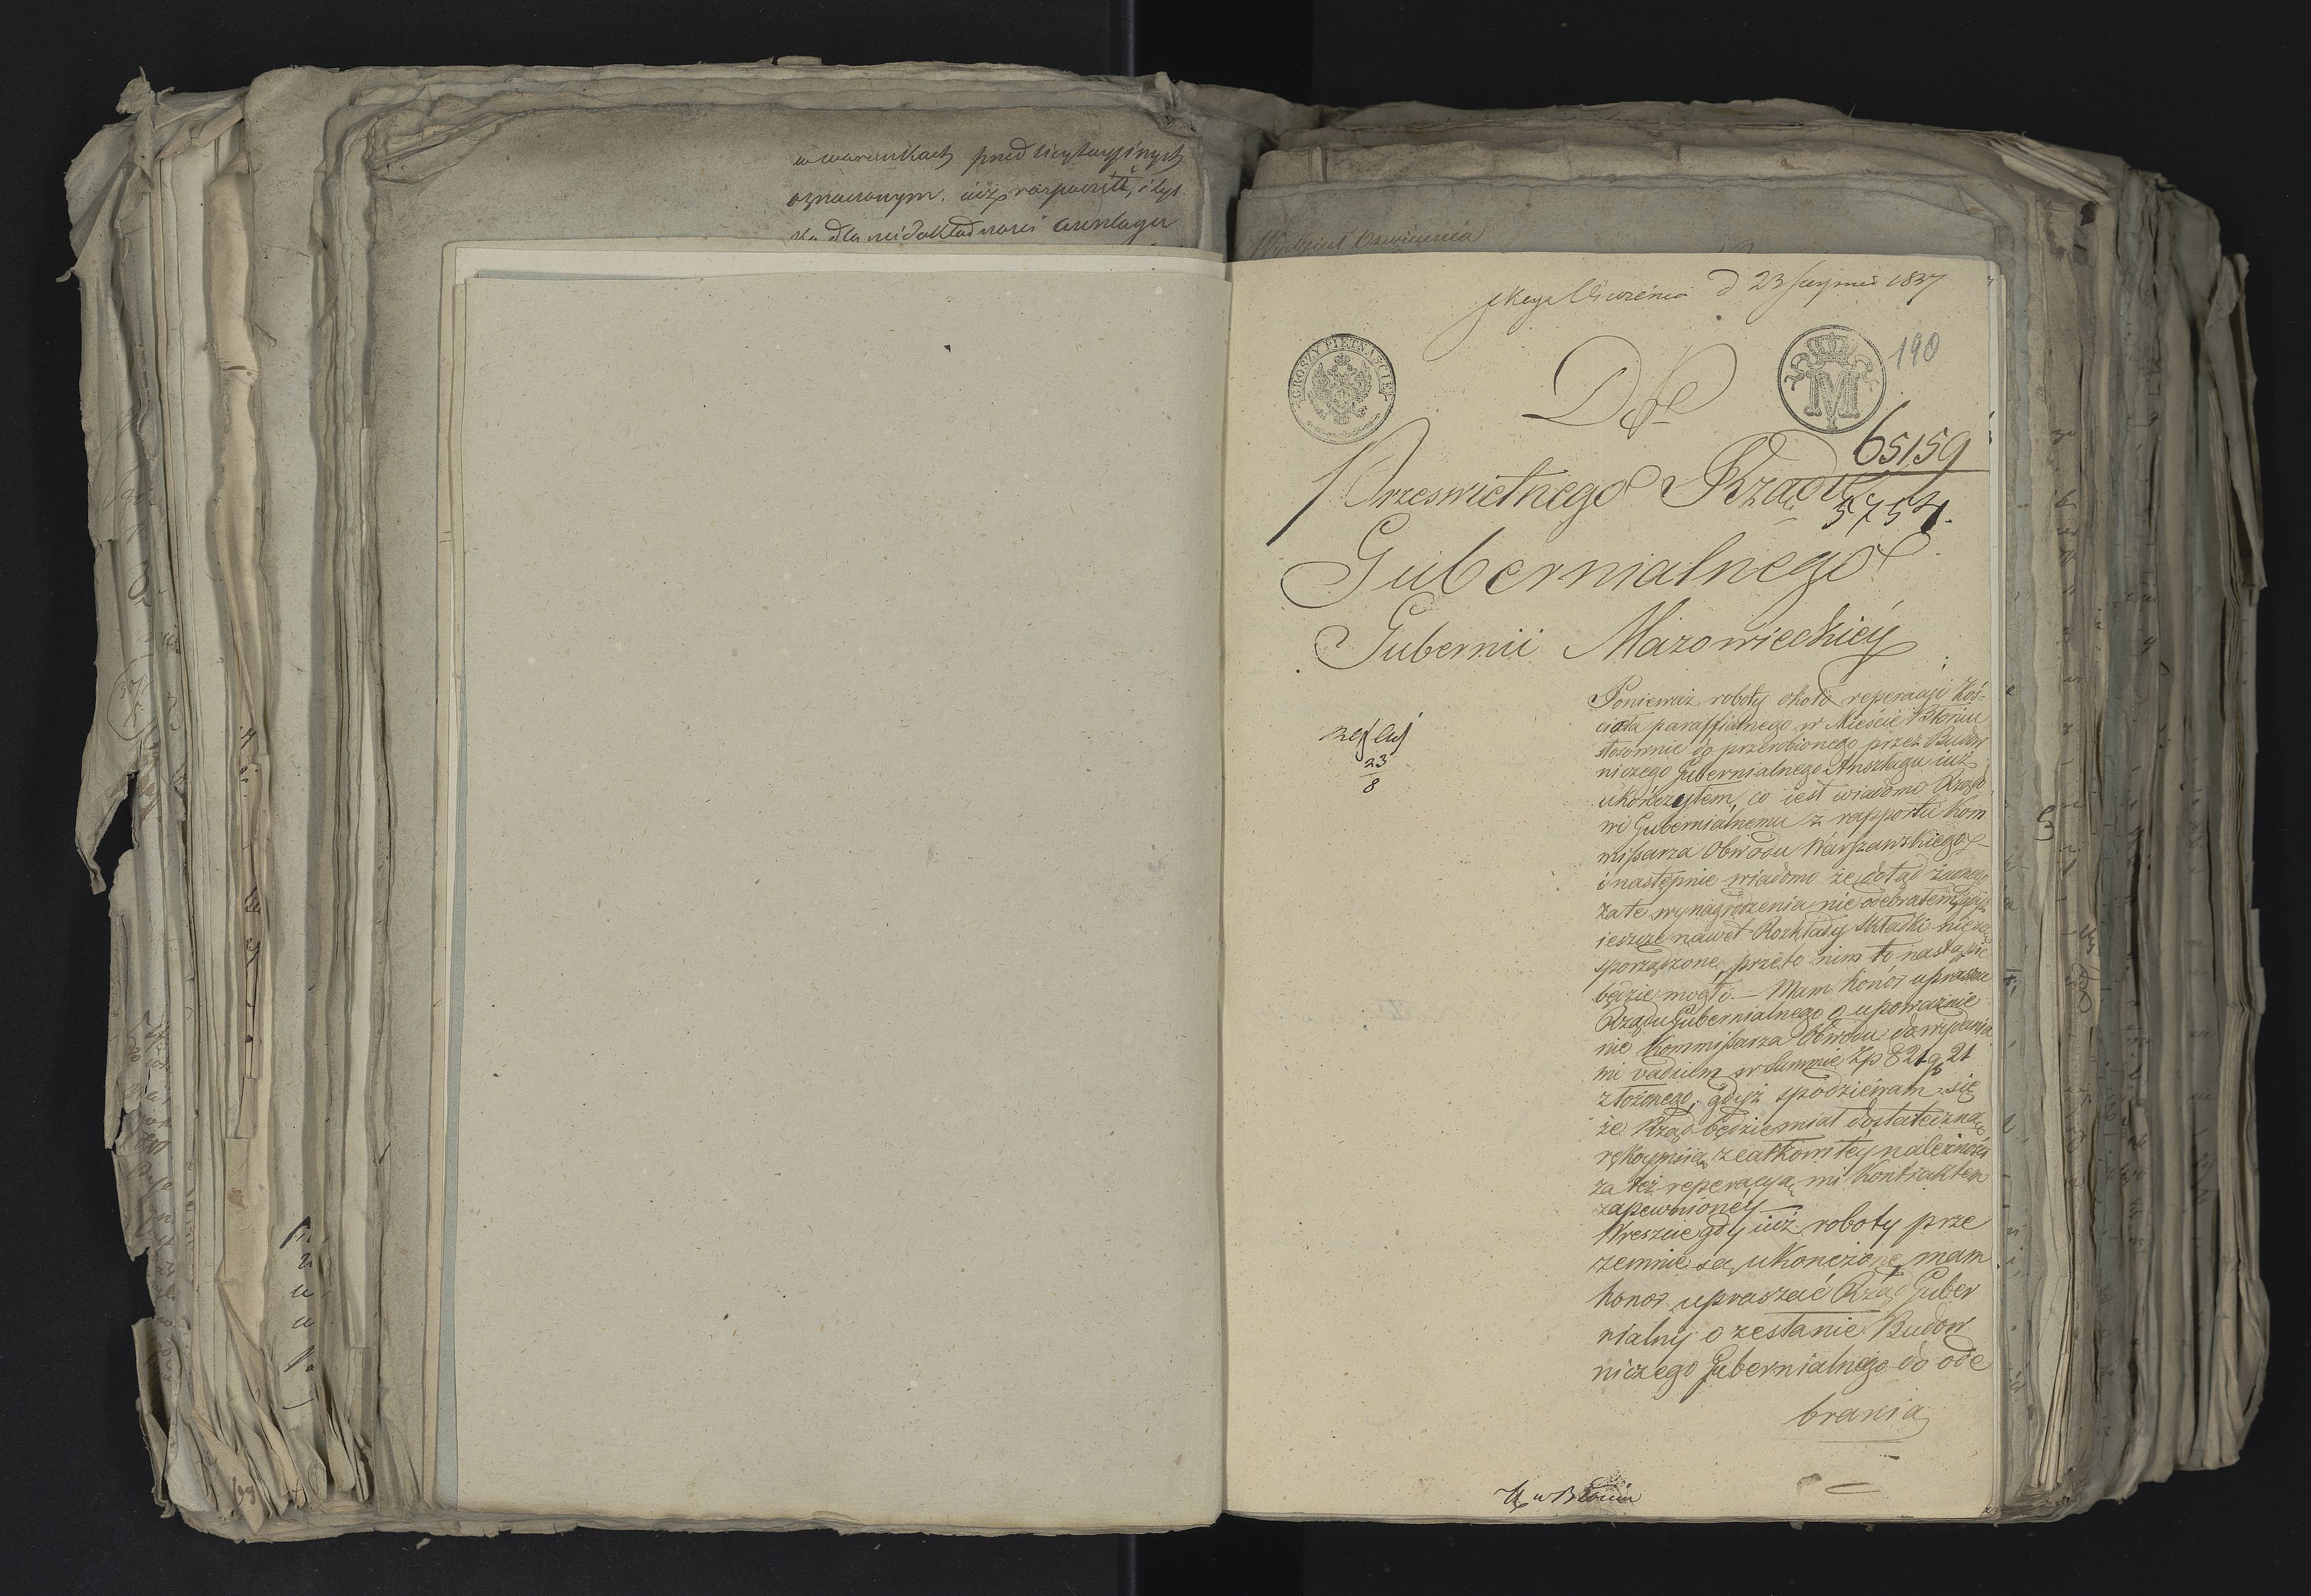 w warunkach przed licytacyjnych
oznaczonym, iuż rozpoczęte, i tyl
ko dla niedokładności anszlagu
Wydział Oświecenia
d 23 Sierpnia 1837
GROSZY PIĘTNAŚCIE
M
190
Do
65159
5754.
Prześwietnego Rządu
Gubernialnego
Gubernii Mazowieckiéy
23
8
Ponieważ roboty około reperacyi Koś-
cioła paraffialnego w Mieście Błoniu
stosownie do przerobionego przez Budow
niczego Gubernialnego Anszlagu iuż
ukończyłem, co iest wiadomo Rządo
wi Gubernialnemu z rapportu Kom
missarza Obwodu Warszawskiego
i następnie wiadomo że dotąd żadnego
za te wynagrodzenia nie odebrałem, gdyż
ieszcze nawet Rozkłady Składki nie są
sporządzone, przeto nim to nastąpić
będzie mogło. — Mam honor upraszać
Rządu Gubernialnego o upoważnie
nie Kommissarza Obwodu do wydania
mi vadium w Summie Zp 821 g 21
złożonego, gdyż spodziewam się
że Rząd będzie miał dostateczną
rękoymią z całkowitéy należności
za też reperacyą mi Kontraktem
zapewnionéy
Wreszcie gdy iuż roboty prze
zemnie są ukończone mam
honor upraszać Rząd Guber
nialny o zesłanie Budow
niczego Gubernialnego do ode
brania
w Błoniu